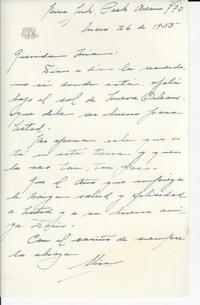 Nueva York Park Avenue, 770
Enero 26 de 1955
Querida mia:
Dia a dia la recuerdo
no sé donde está, ojalá
bajo el sol de Nueva Orleans
que debe ser bueno para
Usted.
Me apena saber que es
tá en esta tierra y que
la veo tan, tan poco.
Que el Año que empieza
le traiga salud y felicidad
a Usted y a su buena ami
ga Doris.
Con el cariño de siempre
la abraza